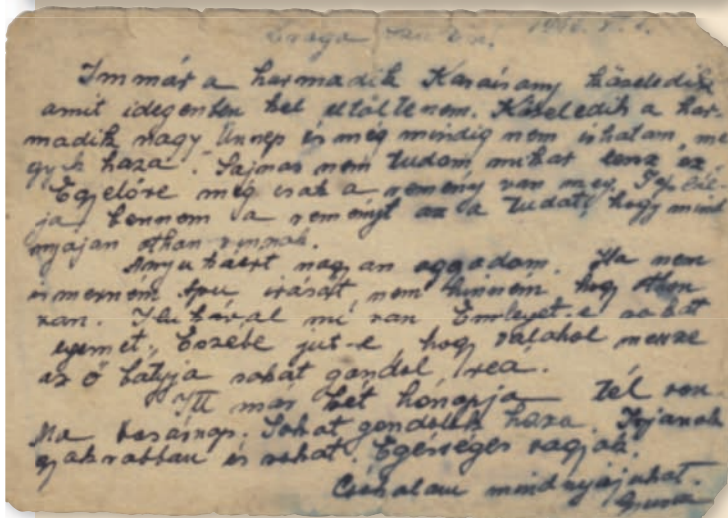 Drága 194
Immár a harmadik Karácsony közeledik
amit idegenben kell eltöltenem. Közeledik a har
madik nagy Ünnep és még mindig nem írhatom, me
gyek haza. Sajnos nem tudom mikor lesz ez
Egyelőre még csak a remény van meg.
ja bennem a reményt az a tudat, hogy mind
nyájan othon vannak.
Anyukáért nagyon aggódom. Ha nem
ismerném Apu írását nem hinném hogy othon
van. Ilukával mi van Emleget-e sokat
engemet, Eszébe jut-e hogy valahol messze
az ő bátyja sokat gondol reá.
Itt már két hónapja tél van.
Ma vasárnap. Sokat gondolok haza. Irjanak
gyakrabban és sokat. Egésséges vagyok.
Csókolom mindnyájukat.